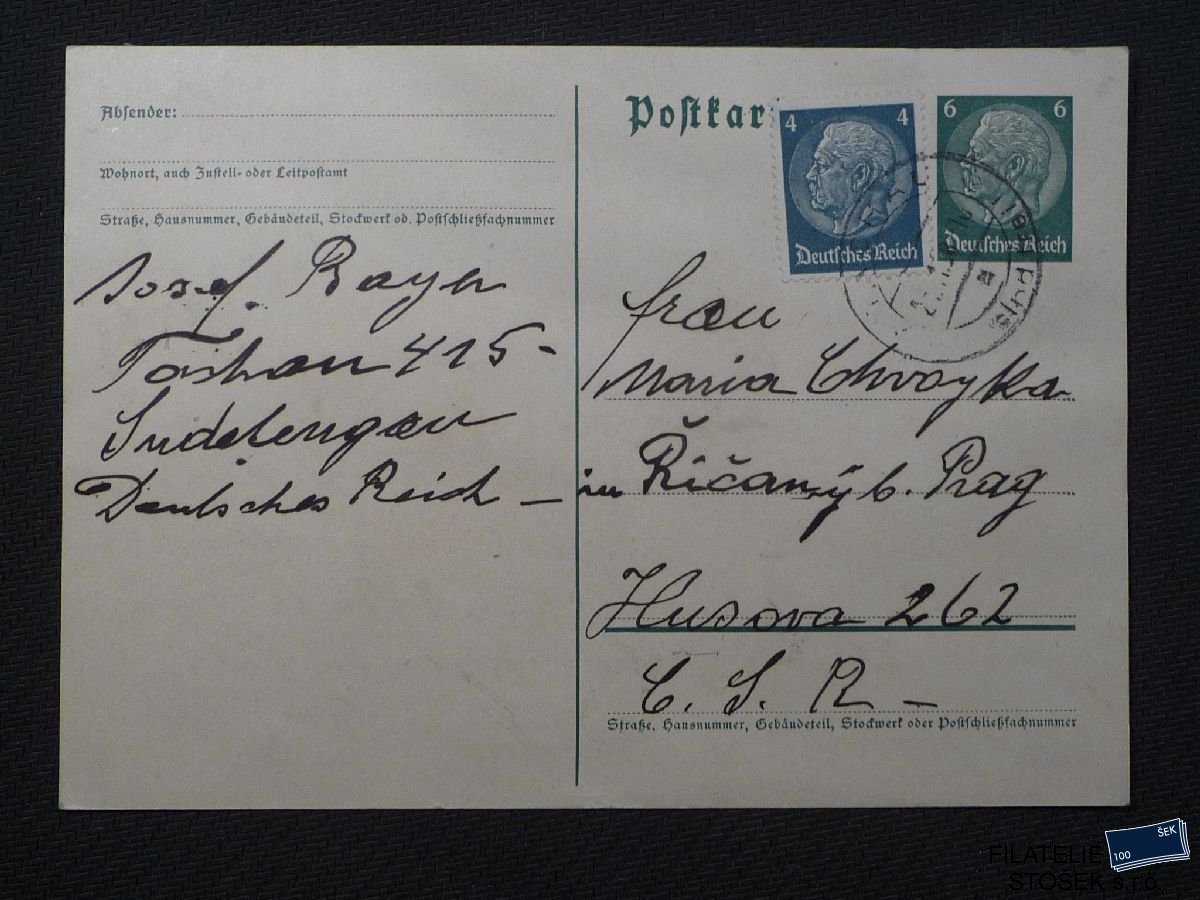 Absender:
Wohnort, auch Zustell- oder Leitpostamt
Straße, Hausnummer, Gebäudeteil, Stockwerk od. Postschließfachnummer
Josef Bayer
415-
Sudetengau
Deutsches Reich -
Postkar
4 4
Deutsches Reich
6 6
Deutsches Reich
Frau
Maria Chvoyka
in Říčany b. Prag
Husova 262
C. S. R -
Straße, Hausnummer, Gebäudeteil, Stockwerk oder Postschließfachnummer
100 ŠEK
FILATELIE
STOSEK s.r.o.